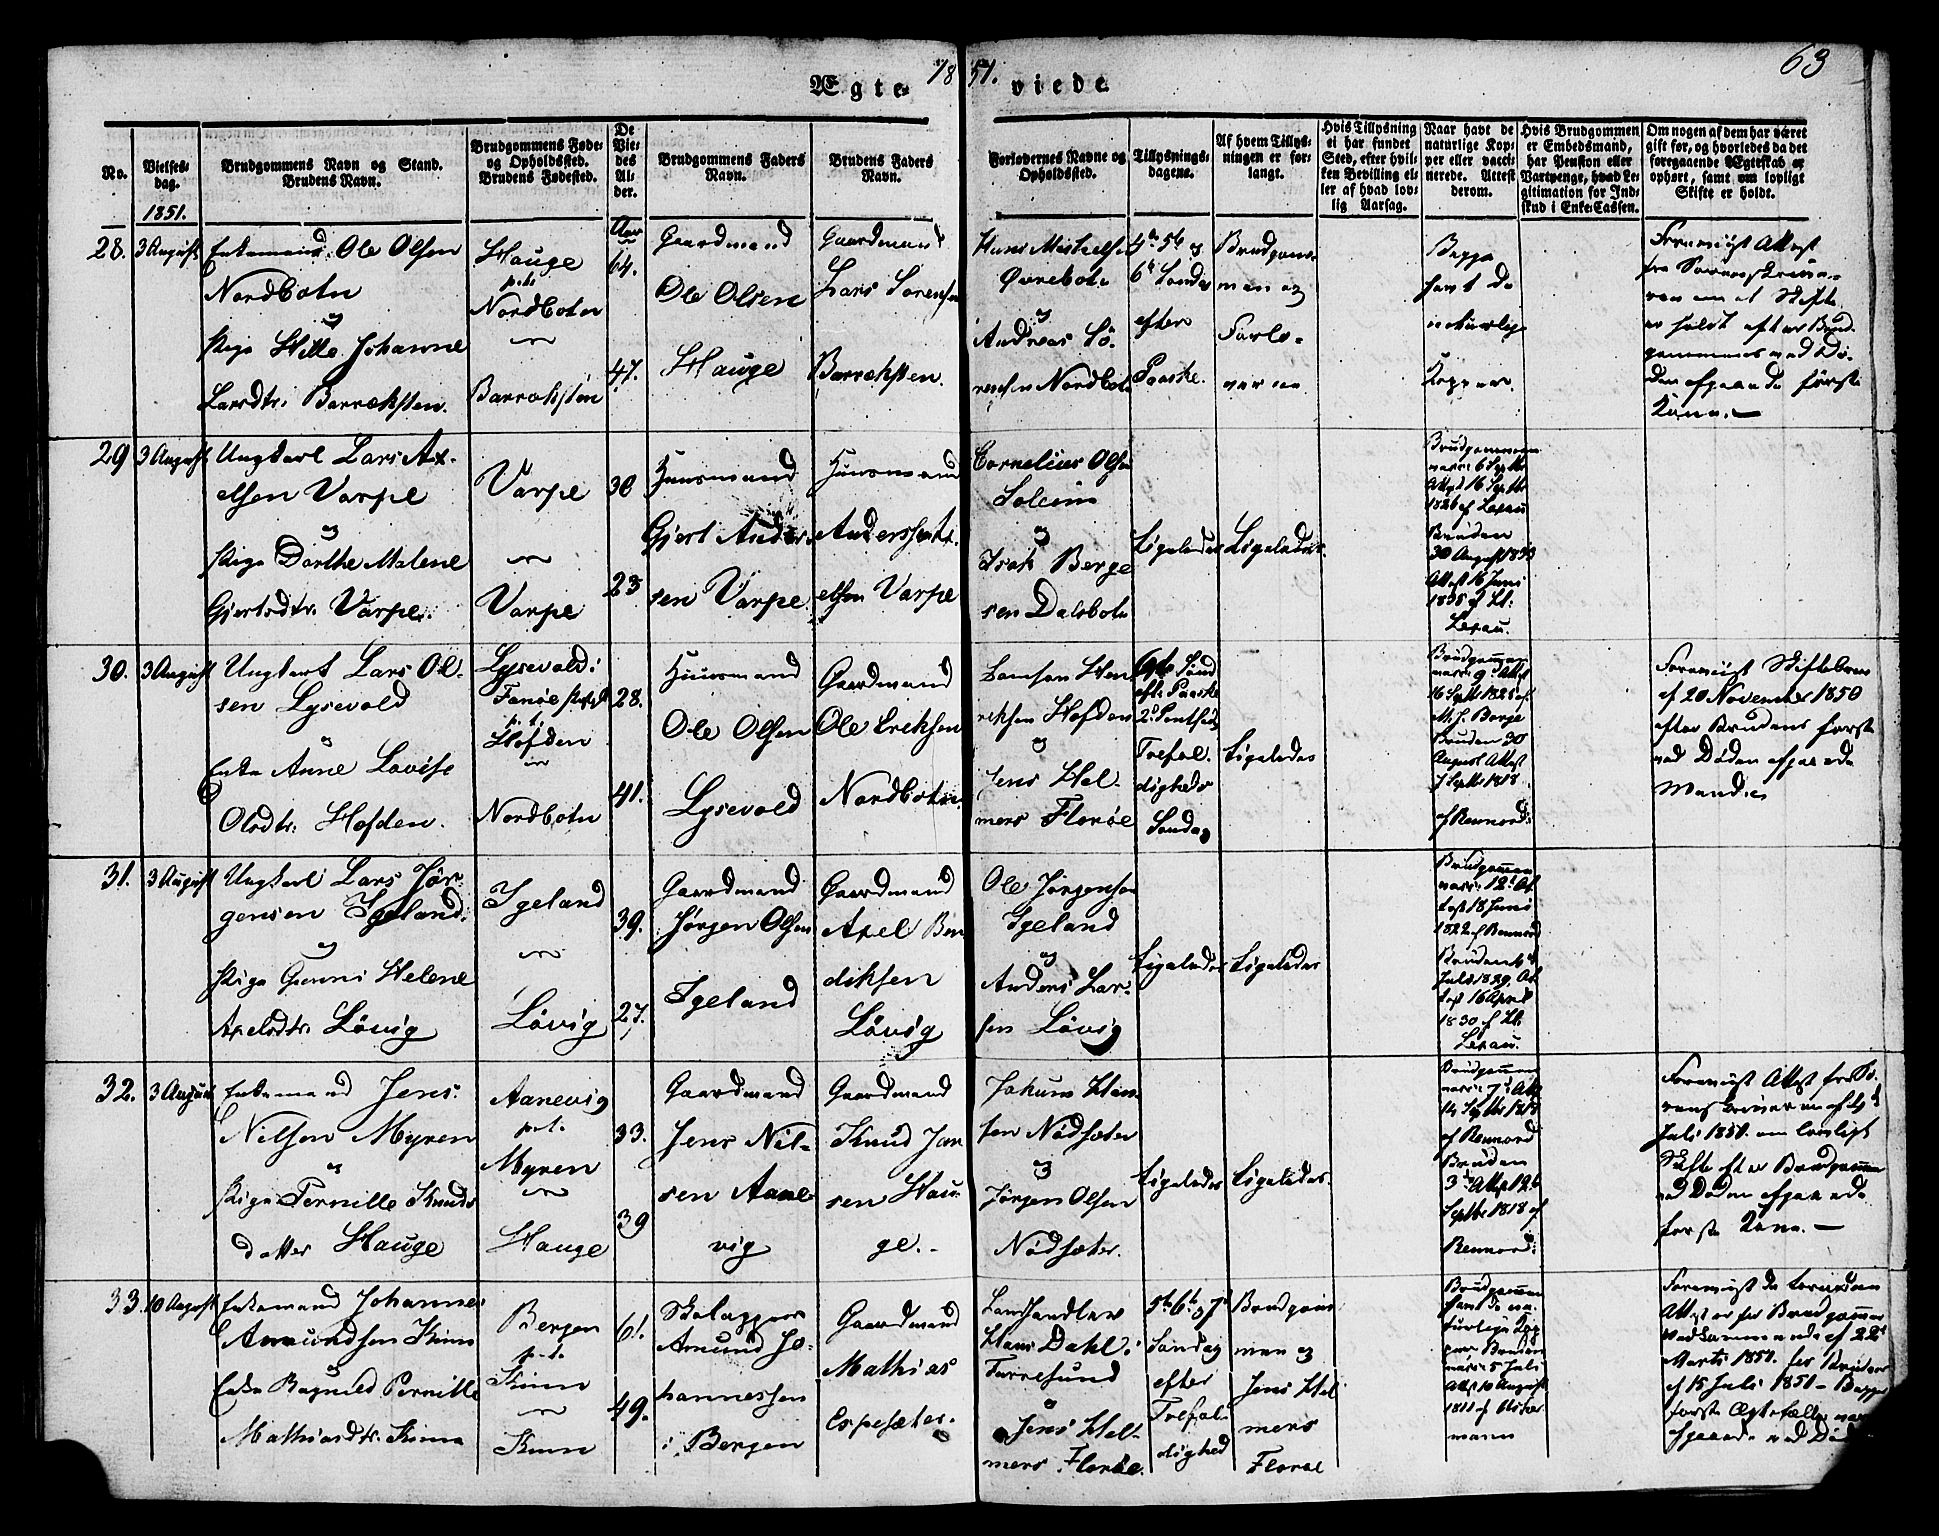 63
1851.
Ægteviede
No.
Vielses-
dag.
1851.
Brudgommens Navn og Stand.
Brudens Navn.
Brudgommens Føde-
og Opholdssted.
Brudens Fødested.
De
Vie-
des
Al-
der.
Brudgommens Faders
Navn.
Brudens Faders
Navn.
Forlovernes Navne og
Opholdssted.
Tillysnings-
dagene.
Af hvem Tillys-
ningen er for-
langt.
Hvis Tillysning
ei har fundet
Sted, efter hvil-
ken Bevilling el-
ler af hvad lov-
lig Aarsag.
Naar havt de
naturlige Kop-
per eller vacci-
nerede. Attest
derom.
Hvis Brudgommen
er Embedsmand,
har Pension eller
Vartpenge, hvad Le-
gitimation for Ind-
skud i Enke-Cassen.
Om nogen af dem har været
gift før, og hvorledes da det
foregaaende Ægteskab er
ophørt, samt om lovligt
Skifte er holdt.
28.
3 August
Enkemand Ole Olsen
Nordbotn
og
Pige Hille Johanne
Larsdtr: Barreksten.
Hauge
p.t.
Nordbotn
Barreksten
Aar
64.
47.
Gaardmand
Ole Olsen
Hauge
Gaardmand
Lars Sørensen
Barreksten.
Hans Mickelsen
Øvrebotn
og
Andreas Sø-
rensen Nordbotn
4de 5te og
6te Søndag
efter
Paaske.
Brudgom-
men og
Forlo-
verne
Begge
havt de
naturlige
Kopper.
Forevist Attest
fra Sorenskrive-
ren om at Skifte
er holdt efter Brud-
gommens ved Dø-
den afgaaede første
Kone.
29
3 August
Ungkarl Lars Ax-
elsen Varpe
og
Pige Dorthe Malene
Gjertsdtr: Varpe.
Varpe
Varpe
30
23
Huusmand
Gjert Ander-
sen Varpe
Huusmand
Anders Ax-
elsen Varpe
Cornelius Olsen
Soleim
og
Isak Berge
sen Dalsbotn
Ligeledes
Ligeledes
Brudgommen
vacc: 6 Septbr
Attest 16 Septbr
1826 af Lexau
Bruden
30 August 1833
Attest 16 Juni
1835 af Kl:
Lexau.
30.
3 August
Ungkarl Lars Ol-
sen Lysevold
og
Enke Anne Lovise
Olsdtr: Hofden.
Lysevold i
Fanøe
p.t.
Hofden
Nordbotn
28.
41.
Huusmand
Ole Olsen
Lysevold
Gaardmand
Ole Eriksen
Nordbotn.
Hen-
riksen Hofden
og
Jens Hel-
mers Florøe
6te Sønd
eft: Paaske
2d Pintsedag
Trefol-
digheds
Søndag
Ligeledes
Brudgommen
vacc: 9d Attest
16 Septbr 1825 af
Bruden 30
August Attest
7 Septbr 1818
af Rennord:
Forevist Skiftebrev
af 20 November 1850
efter Brudens første
ved Døden afgaaede
Mand.
31.
3 August
Ungkarl Lars Jør-
gensen Igeland.
og
Pige Gunni Helene
Axelsdtr: Løvig
Igeland
Løvig
39.
27.
Gaardmand
Jørgen Olsen
Igeland
Gaardmand
Axel Ben
diksen
Løvig
Ole Jørgensen
Igeland
og
Anders Lar-
sen Løvig
Ligeledes
Ligeledes
Brudgommen
vacc: 12d At-
test 18 Juni
1822 af Rennord
Bruden
Juli 1829. At
test 16 April
1830 af Kl:
Lexau.
32.
3 August
Enkemand Jens
Nilsen Myren
og
Pige Pernille Knuds
datter Hauge
Aanevig
p.t.
Myren
Hauge
33.
39
Gaardmand
Jens Nil-
sen Aane
vig
Gaardmand
Knud Jan
sen Hau-
ge.
Jakum
sen Nødsæter
og
Jørgen Olsen
Nødsæter.
Ligeledes
Ligeledes.
Brudgommen
vacc: 7d Att
14 Septbr 1818
af Rennord
Bruden
3die Attest 26
Septbr 1818 af
Rennord:
Forevist Attest fra So-
renskriveren af
Juli 1851. om lovligt
Skifte efter Brudgommens
ved Døden afgaaede
første Kone.
33.
10 August
Enkemand Johannes
Amundsen Kinn
Enke Ragnild Pernille
Mathiasdtr: Kinn
Bergen
p.t.
Kinn
Kinn
61.
49.
Amund Jo-
hannessen
i Bergen
Gaardmand
Mathias
Espesæter.
Landhandler
Hans Dahl i
Farresund
og
Jens Hel-
mers Florøe.
5te 6te og 7de
Søndag
efter
Trefol-
dighed
Brudgom-
men og
Jens Hel
mers
Florøe
Brudgommen
havt de na-
turlige Kop
per Bruden
vacc: 5 Juli
Attest 10 August
1811 af
mann
Forevist de fornødne
Attester for Brudgommens
vedkommende af 22de
Marts 1851. for Bruden
af 15 Juli 1851 - Begges
første Ægtefæller var
afgaaede ved Død